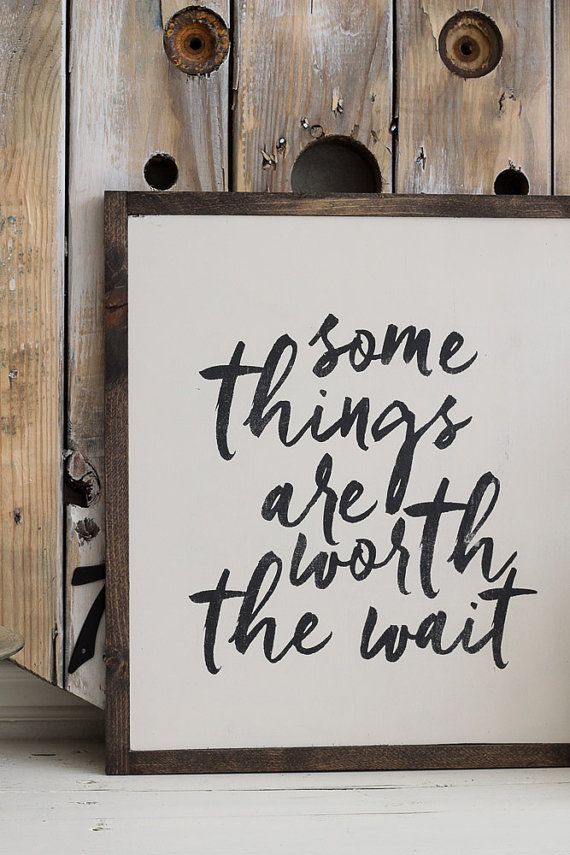 some
things
are
worth
the wait
7